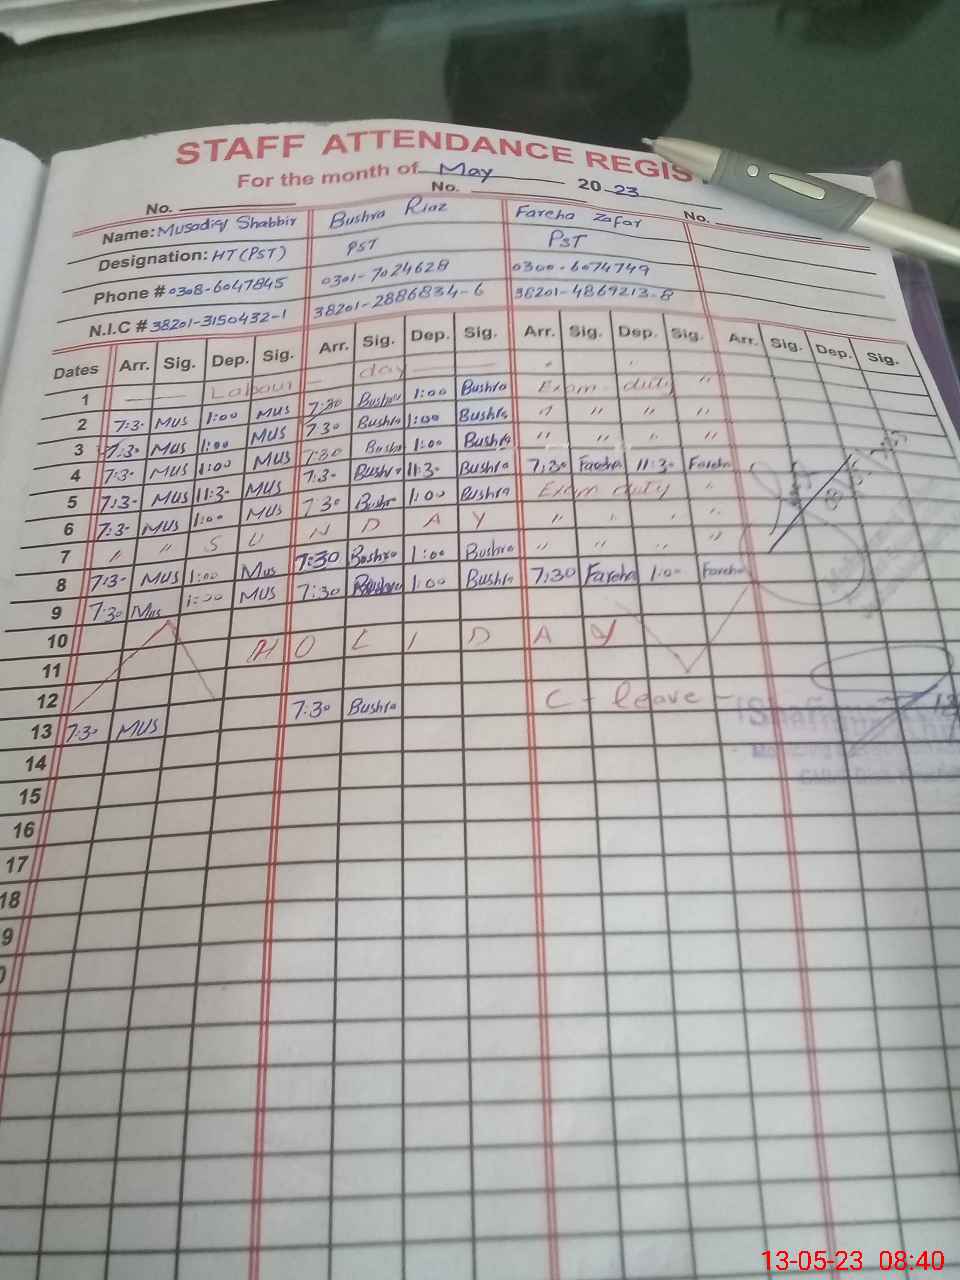 STAFF ATTENDANCE REGIS
For the month of May 20 23
No. No. No.
Name: Musadiq Shabbir Bushra Riaz Fareha Zafar
Designation: HT (PST) PST PST
Phone # 0308-6047845 0301-7024628 0300-6074749
N.I.C # 38201-3150432-1 38201-2886834-6 38201-4869213-8
Dates Arr. Sig. Dep. Sig. Arr. Sig. Dep. Sig. Arr. Sig. Dep. Sig. Arr. Sig. Dep. Sig.
1 Labour day " "
2 7:3- MUS 1:00 MUS 7:30 Bushra 1:00 Bushra Exam duty "
3 7:3- MUS 1:00 MUS 7:30 Bushra 1:00 Bushra " " " "
4 7:3- MUS 1:00 MUS 7:30 Bushra 1:00 Bushra " " " "
5 7:3- MUS 11:3- MUS 7:3- Bushra 11:3- Bushra 7:30 Fareha 11:3- Fareha
6 7:3- MUS 1:00 MUS 7:30 Bushra 1:00 Bushra Exam duty "
7 " " S U N D A Y " " " "
8 7:3- MUS 1:00 MUS 7:30 Bushra 1:00 Bushra " " " "
9 7:30 Mus 1:00 MUS 7:30 Bushra 1:00 Bushra 7:30 Fareha 1:0- Fareha
10
11 H O L I D A Y
12
13 7:30 MUS 7:30 Bushra C - leave -
14
15
16
17
18
9
0
13-05-23 08:40